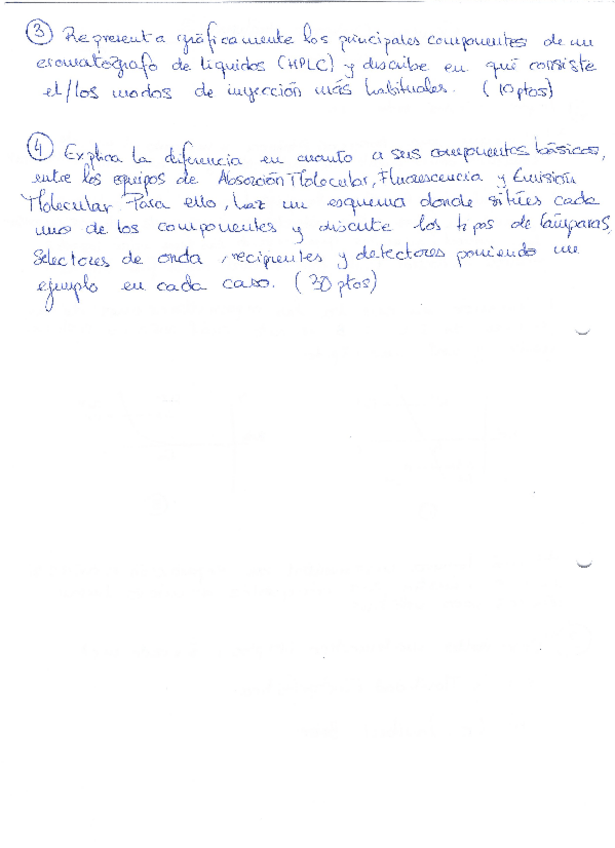 ③ Representa gráficamente los principales componentes de un
cromatógrafo de líquidos (HPLC) y describe en qué consiste
el/los modos de inyección más habituales. (10 ptos)
④ Explica la diferencia en cuanto a sus componentes básicos,
entre los equipos de Absorción Molecular, Fluorescencia y Emisión
Molecular. Para ello, haz un esquema donde sitúes cada
uno de los componentes y discute los tipos de lámparas,
selectores de onda, recipientes y detectores poniendo un
ejemplo en cada caso. (30 ptos)